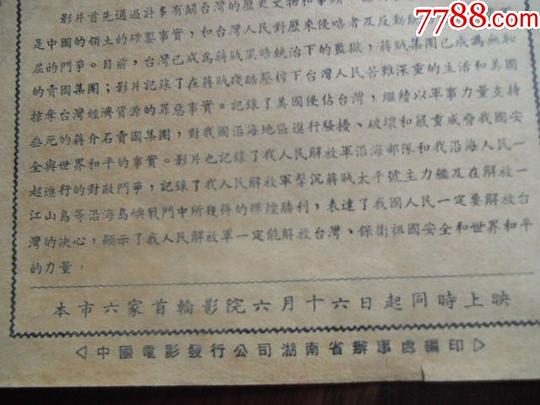 7788.com
影片首先通過許多有關台灣的歷史文物和事
是中國的領土的确鑿事實，和台灣人民對歷來侵略者及反動統
屈的鬥爭。目前，台灣已成為蔣賊黑暗統治下的監獄，蔣賊集團已成為無恥
的賣國集團；影片記錄了在蔣賊殘酷壓榨下台灣人民苦難深重的生活和美國
掠奪台灣經濟資源的罪惡事實。記錄了美國侵佔台灣，繼續以軍事力量支持
垂死的蔣介石賣國集團，對我國沿海地區進行騷擾、破壞和嚴重威脅我國安
全與世界和平的事實。影片也記錄了我人民解放軍沿海部隊和我沿海人民一
起進行的對敵鬥爭，記錄了我人民解放軍擊沉蔣賊太平號主力艦及在解放一
江山島等沿海島嶼戰鬥中所獲得的輝煌勝利，表達了我國人民一定要解放台
灣的决心，顯示了我人民解放軍一定能解放台灣、保衛祖國安全和世界和平
的力量，
本市六家首輪影院六月十六日起同時上映
◁中國電影發行公司湖南省辦事處編印▷